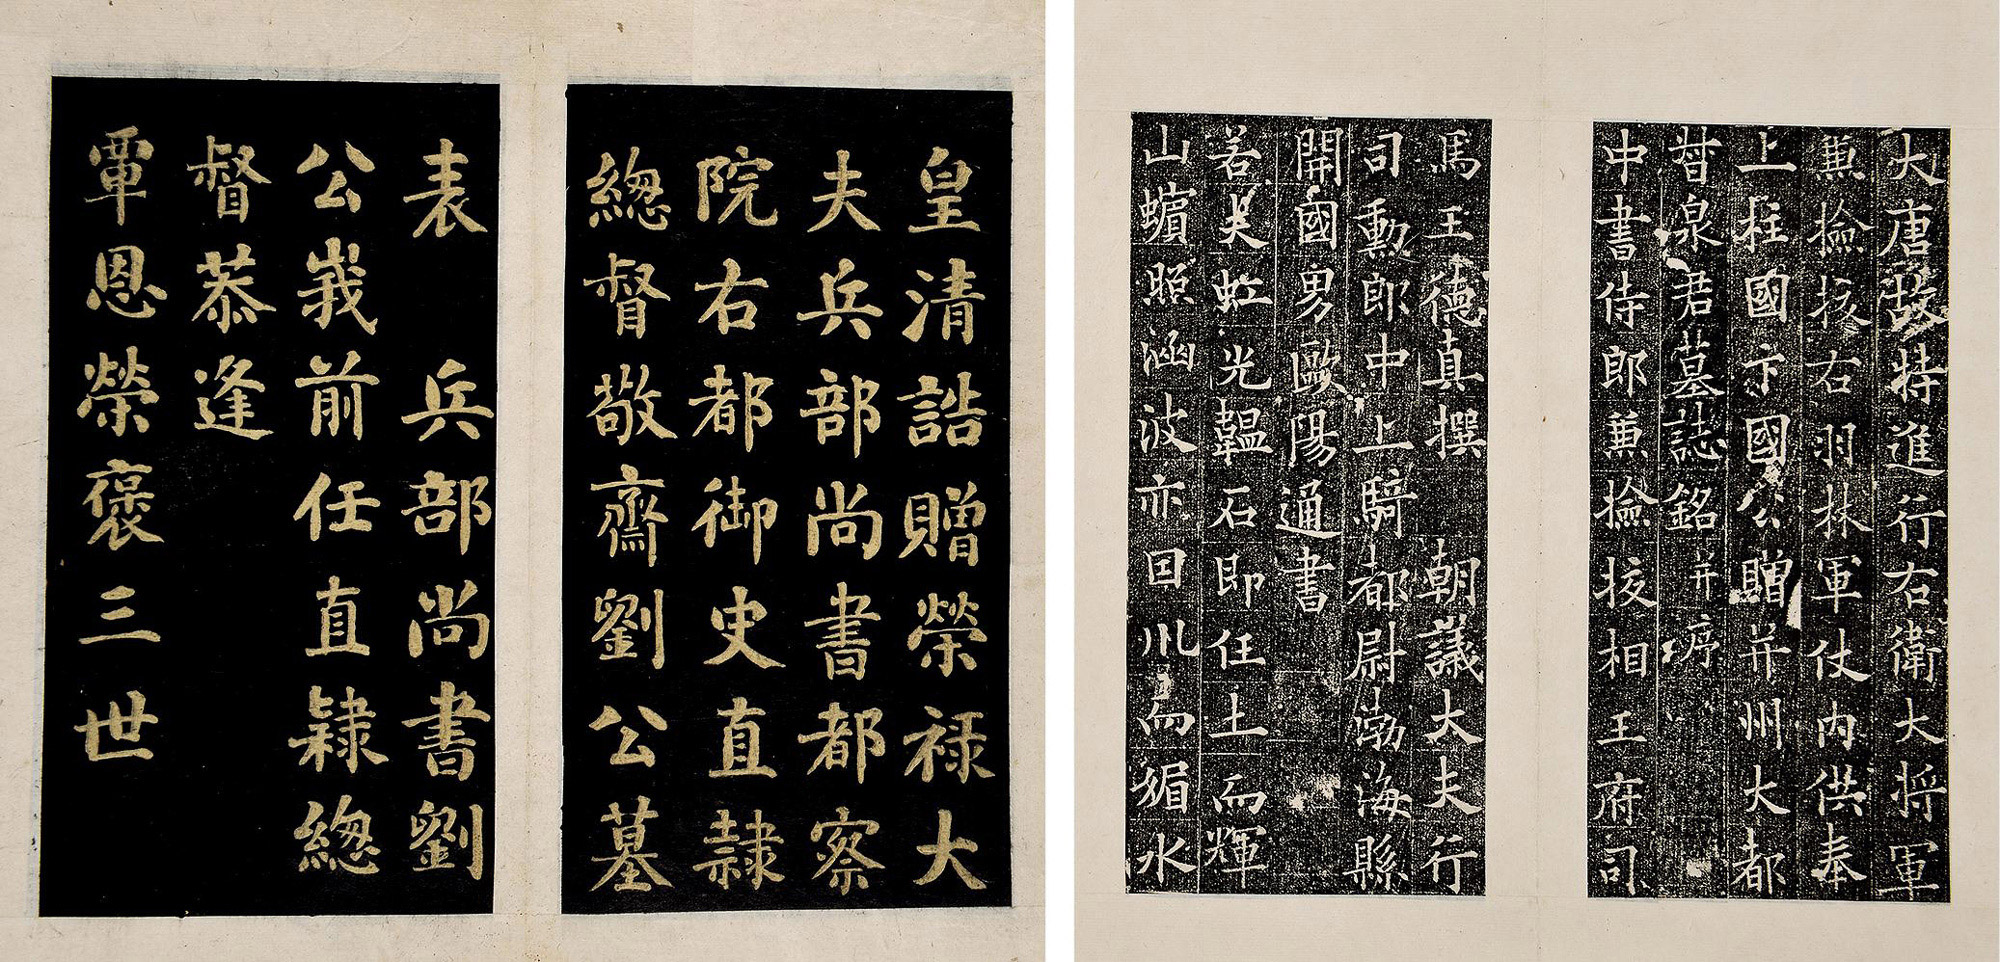 皇清誥贈榮祿大
夫兵部尚書都察
院右都御史直隸
緫督敬齋劉公墓
表　兵部尚書劉
公峩前任直隸緫
督恭逢
覃恩榮褒三世
大唐故特進行右衛大將軍
兼撿挍右羽林軍仗內供奉
上柱國卞國公贈并州大都
督泉君墓誌銘并序
中書侍郎兼撿挍相王府司
馬王德真撰　朝議大夫行
司勳郎中上騎都尉渤海縣
開國男歐陽通書
若夫虹光韞石即任土而輝
山蠙照涵波亦因川而媚水